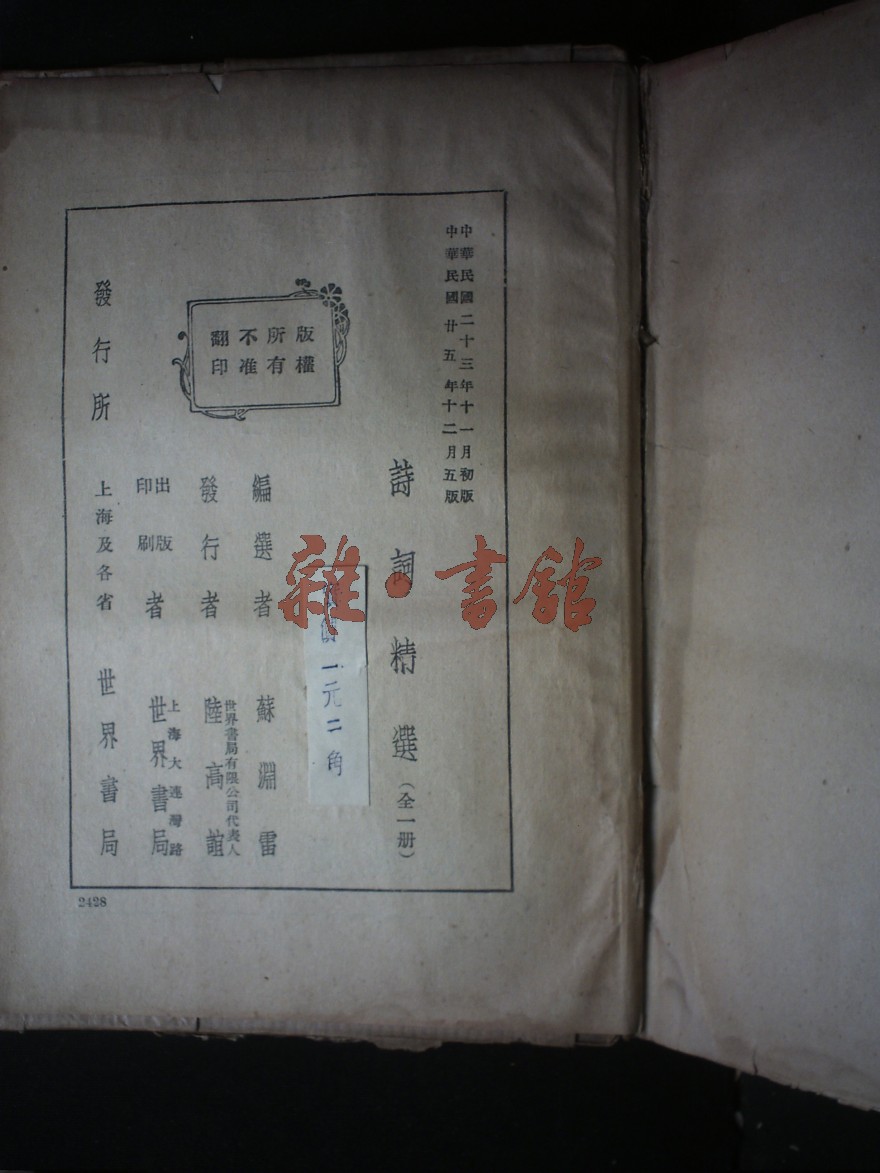 中華民國二十三年十一月初版
中華民國廿五年十二月五版
詩詞精選(全一册)
一元二角
版權所有
不准翻印
編選者 蘇淵雷
發行者 世界書局有限公司代表人 陸高誼
出版印刷者 上海大連灣路 世界書局
發行所 上海及各省 世界書局
2428
雜·書館